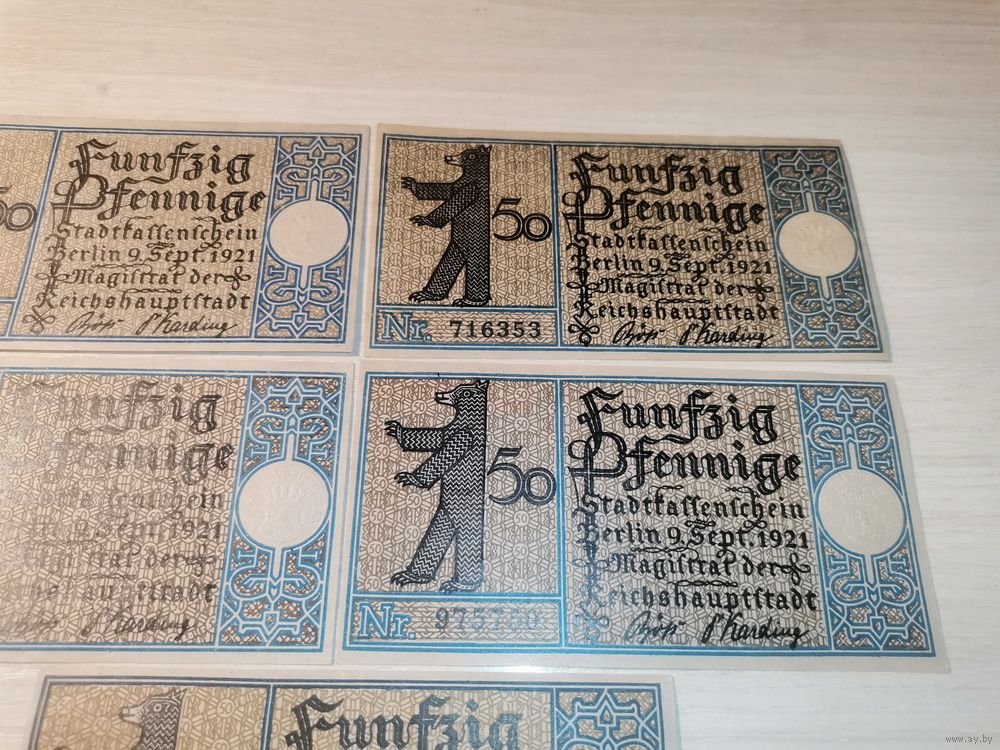 50
Funfzig
Pfennige
Stadtkassenschein
Berlin 9. Sept. 1921
Magistrat der
Reichshauptstadt
50
Nr. 716353
Funfzig
Pfennige
Stadtkassenschein
Berlin 9. Sept. 1921
Magistrat der
Reichshauptstadt
Funfzig
Pfennige
Sept. 1921
der
50
Nr.
Funfzig
Pfennige
Stadtkassenschein
Berlin 9. Sept. 1921
Magistrat der
Reichshauptstadt
Funfzig
www.ay.by